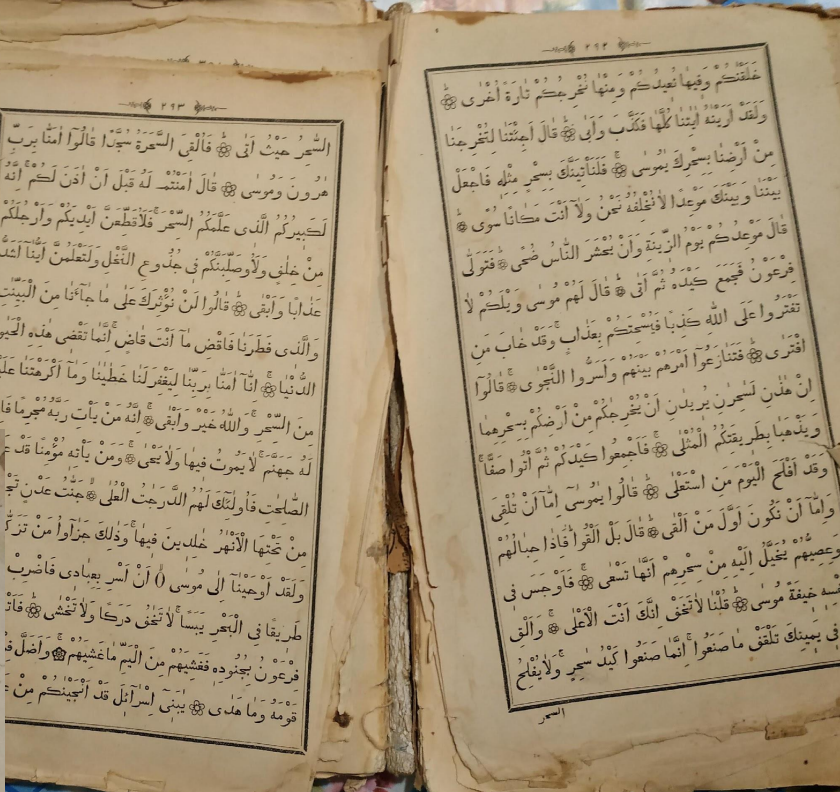 ٢٩٢
خَلَقْنَاكُمْ وَفِيهَا نُعِيدُكُمْ وَمِنْهَا نُخْرِجُكُمْ تَارَةً اُخْرٰى
وَلَقَدْ اَرَيْنَاهُ اٰيَاتِنَا كُلَّهَا فَكَذَّبَ وَاَبٰى قَالَ اَجِئْتَنَا لِتُخْرِجَنَا
مِنْ اَرْضِنَا بِسِحْرِكَ يَامُوسٰى فَلَنَأْتِيَنَّكَ بِسِحْرٍ مِثْلِهِ فَاجْعَلْ
بَيْنَنَا وَبَيْنَكَ مَوْعِدًا لَا نُخْلِفُهُ نَحْنُ وَلَٓا اَنْتَ مَكَانًا سُوًى
قَالَ مَوْعِدُكُمْ يَوْمُ الزِّينَةِ وَاَنْ يُحْشَرَ النَّاسُ ضُحًى فَتَوَلّٰى
فِرْعَوْنُ فَجَمَعَ كَيْدَهُ ثُمَّ اَتٰى قَالَ لَهُمْ مُوسٰى وَيْلَكُمْ لَا
تَفْتَرُوا عَلَى اللّٰهِ كَذِبًا فَيُسْحِتَكُمْ بِعَذَابٍ وَقَدْ خَابَ مَنِ
افْتَرٰى فَتَنَازَعُٓوا اَمْرَهُمْ بَيْنَهُمْ وَاَسَرُّوا النَّجْوٰى قَالُٓوا
اِنْ هٰذَانِ لَسَاحِرَانِ يُرِيدَانِ اَنْ يُخْرِجَاكُمْ مِنْ اَرْضِكُمْ بِسِحْرِهِمَا
وَيَذْهَبَا بِطَرِيقَتِكُمُ الْمُثْلٰى فَاَجْمِعُوا كَيْدَكُمْ ثُمَّ ائْتُوا صَفًّا
وَقَدْ اَفْلَحَ الْيَوْمَ مَنِ اسْتَعْلٰى قَالُوا يَامُوسٰٓى اِمَّٓا اَنْ تُلْقِىَ
وَاِمَّٓا اَنْ نَكُونَ اَوَّلَ مَنْ اَلْقٰى قَالَ بَلْ اَلْقُوا فَاِذَا حِبَالُهُمْ
وَعِصِيُّهُمْ يُخَيَّلُ اِلَيْهِ مِنْ سِحْرِهِمْ اَنَّهَا تَسْعٰى فَاَوْجَسَ فِى
نَفْسِهِ خِيفَةً مُوسٰى قُلْنَا لَا تَخَفْ اِنَّكَ اَنْتَ الْاَعْلٰى وَاَلْقِ
مَا فِى يَمِينِكَ تَلْقَفْ مَا صَنَعُوا اِنَّمَا صَنَعُوا كَيْدُ سَاحِرٍ وَلَا يُفْلِحُ
السحر
٢٩٣
السَّاحِرُ حَيْثُ اَتٰى فَاُلْقِىَ السَّحَرَةُ سُجَّدًا قَالُٓوا اٰمَنَّا بِرَبِّ
هٰرُونَ وَمُوسٰى قَالَ اٰمَنْتُمْ لَهُ قَبْلَ اَنْ اٰذَنَ لَكُمْ اِنَّهُ
لَكَبِيرُكُمُ الَّذِى عَلَّمَكُمُ السِّحْرَ فَلَاُقَطِّعَنَّ اَيْدِيَكُمْ وَاَرْجُلَكُمْ
مِنْ خِلَافٍ وَلَاُوصَلِّبَنَّكُمْ فِى جُذُوعِ النَّخْلِ وَلَتَعْلَمُنَّ اَيُّنَٓا اَشَدُّ
عَذَابًا وَاَبْقٰى قَالُوا لَنْ نُؤْثِرَكَ عَلٰى مَا جَٓاءَنَا مِنَ الْبَيِّنَاتِ
وَالَّذِى فَطَرَنَا فَاقْضِ مَٓا اَنْتَ قَاضٍ اِنَّمَا تَقْضِى هٰذِهِ الْحَيٰوةَ
الدُّنْيَا اِنَّٓا اٰمَنَّا بِرَبِّنَا لِيَغْفِرَ لَنَا خَطَايَانَا وَمَٓا اَكْرَهْتَنَا
مِنَ السِّحْرِ وَاللّٰهُ خَيْرٌ وَاَبْقٰى اِنَّهُ مَنْ يَأْتِ رَبَّهُ مُجْرِمًا
لَهُ جَهَنَّمَ لَا يَمُوتُ فِيهَا وَلَا يَحْيٰى وَمَنْ يَأْتِهِ مُؤْمِنًا قَدْ
الصَّالِحَاتِ فَاُولٰٓئِكَ لَهُمُ الدَّرَجَاتُ الْعُلٰى جَنَّاتُ عَدْنٍ
مِنْ تَحْتِهَا الْاَنْهَارُ خَالِدِينَ فِيهَا وَذٰلِكَ جَزَٓاؤُا مَنْ تَزَكّٰى
وَلَقَدْ اَوْحَيْنَٓا اِلٰى مُوسٰٓى اَنْ اَسْرِ بِعِبَادِى فَاضْرِبْ
طَرِيقًا فِى الْبَحْرِ يَبَسًا لَا تَخَافُ دَرَكًا وَلَا تَخْشٰى
فِرْعَوْنُ بِجُنُودِهِ فَغَشِيَهُمْ مِنَ الْيَمِّ مَا غَشِيَهُمْ وَاَضَلَّ
قَوْمَهُ وَمَا هَدٰى يَا بَنِٓى اِسْرَٓائِلَ قَدْ اَنْجَيْنَاكُمْ مِنْ